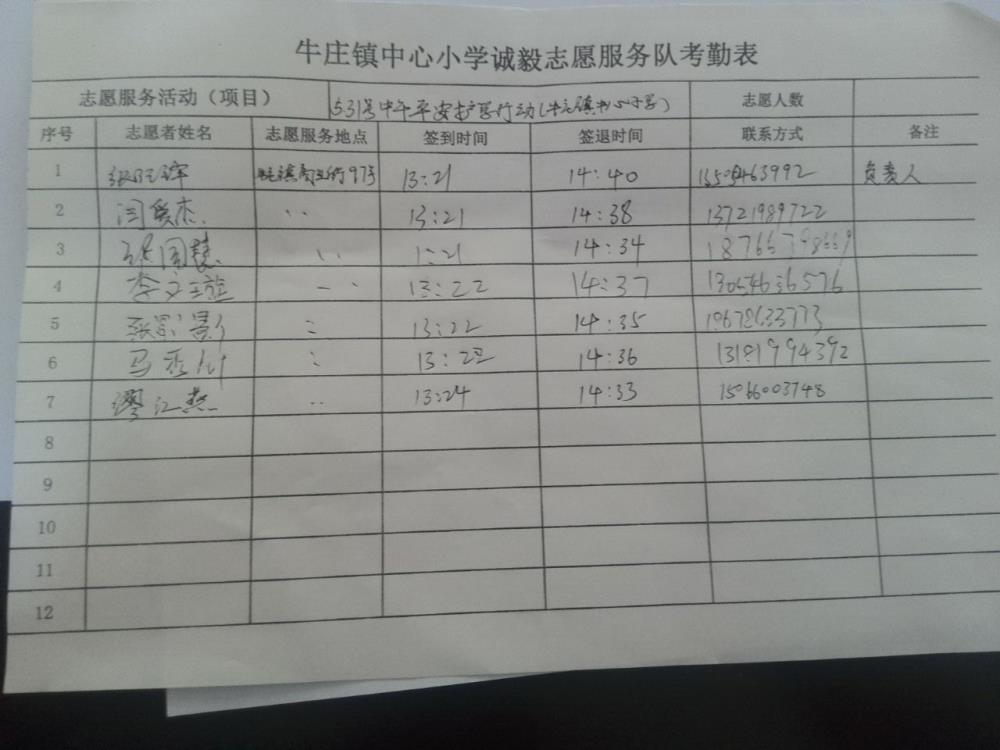 牛庄镇中心小学诚毅志愿服务队考勤表
志愿服务活动（项目） 531号中午平安护学行动(牛庄镇中心小学) 志愿人数
序号 志愿者姓名 志愿服务地点 签到时间 签退时间 联系方式 备注
1 97号 13:21 14:40 负责人
2 闫俊杰 〃 13:21 14:38 13721989722
3 〃 1:21 14:34
4 李文璇 〃 13:22 14:37
5 〃 13:22 14:35
6 马秀 〃 13:22 14:36 13181994392
7 缪江燕 〃 13:24 14:33 15066003748
8
9
10
11
12